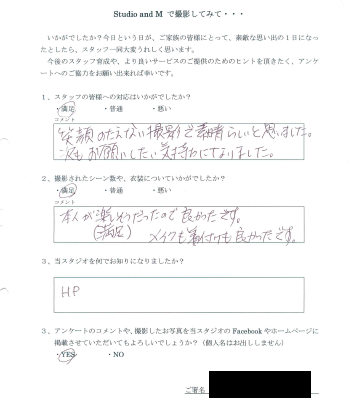 Studio and M で撮影してみて・・・
いかがでしたか？今日という日が、ご家族の皆様にとって、素敵な思い出の１日になっ
たとしたら、スタッフ一同大変うれしく思います。
今後のスタッフ育成や、より良いサービスのご提供のためのヒントを頂きたく、アンケ
ートへのご協力をお願い出来れば幸いです。
１、スタッフの皆様への対応はいかがでしたか？
・満足 ・普通 ・悪い
コメント
笑顔のたえない撮影で素晴らしいと思いました。
次もお願いしたい気持ちになりました。
２、撮影されたシーン数や、衣装についていかがでしたか？
・満足 ・普通 ・悪い
コメント
本人が楽しそうだったので良かったです。
(満足) メイクも着付けも良かったです。
３、当スタジオを何でお知りになりましたか？
HP
３、アンケートのコメントや、撮影したお写真を当スタジオの Facebook やホームページに
掲載させていただいてもよろしいでしょうか？（個人名はお出ししません）
・YES ・NO
ご署名